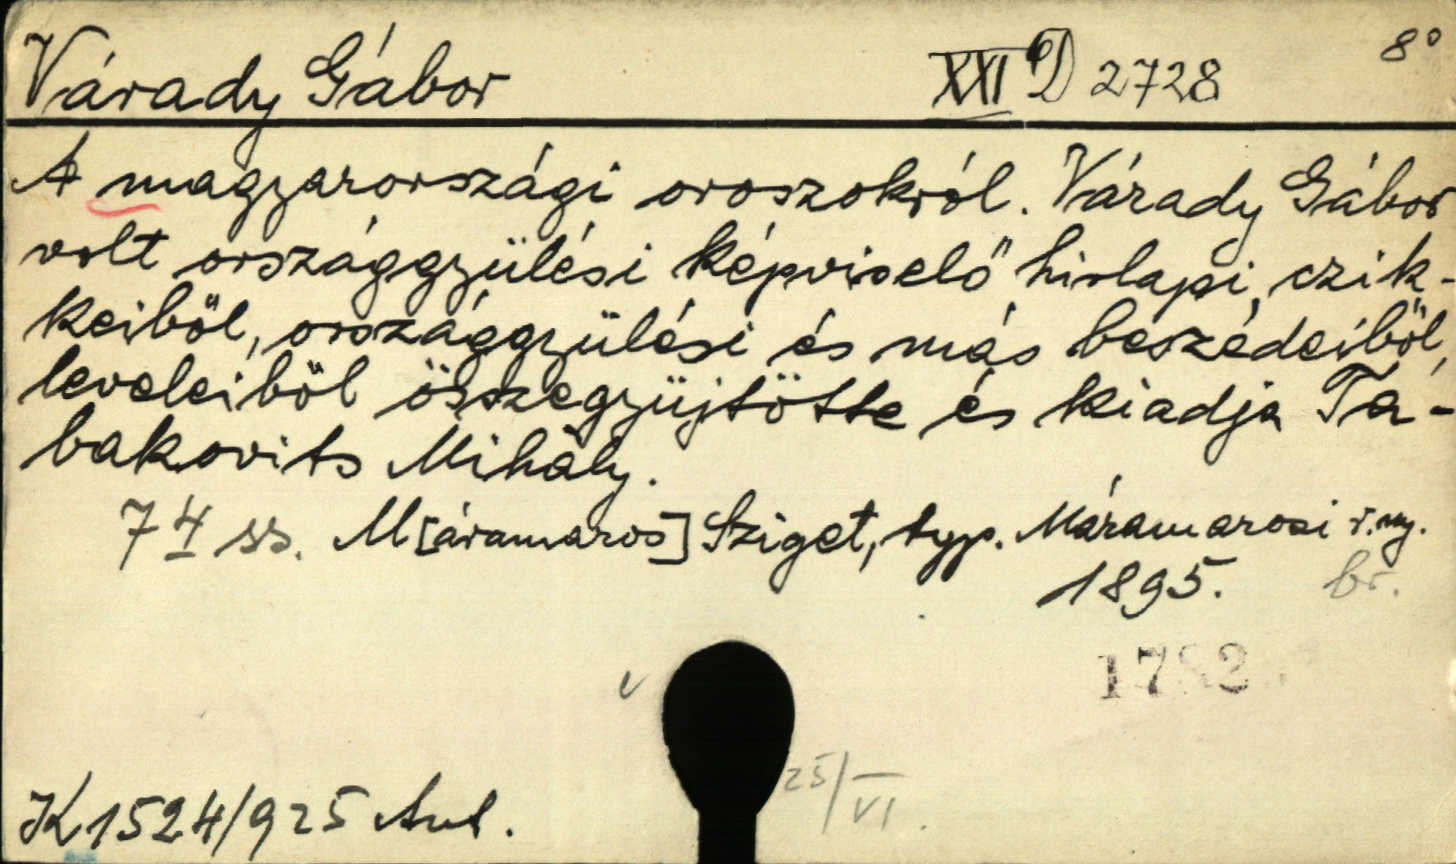 Várady Gábor XXI D 2728 8°
A magyarországi oroszokról. Várady Gábor
volt országgyülési képviselő hirlapi, czik-
keiből, országgyülési és más beszédeiből,
leveleiből összegyüjtötte és kiadja Ta-
bakovits Mihály.
74 ss. M[áramaros] Sziget, typ. Máramarosi r. ny.
1895. br.
25/VI.
K 1524/925 Ant.